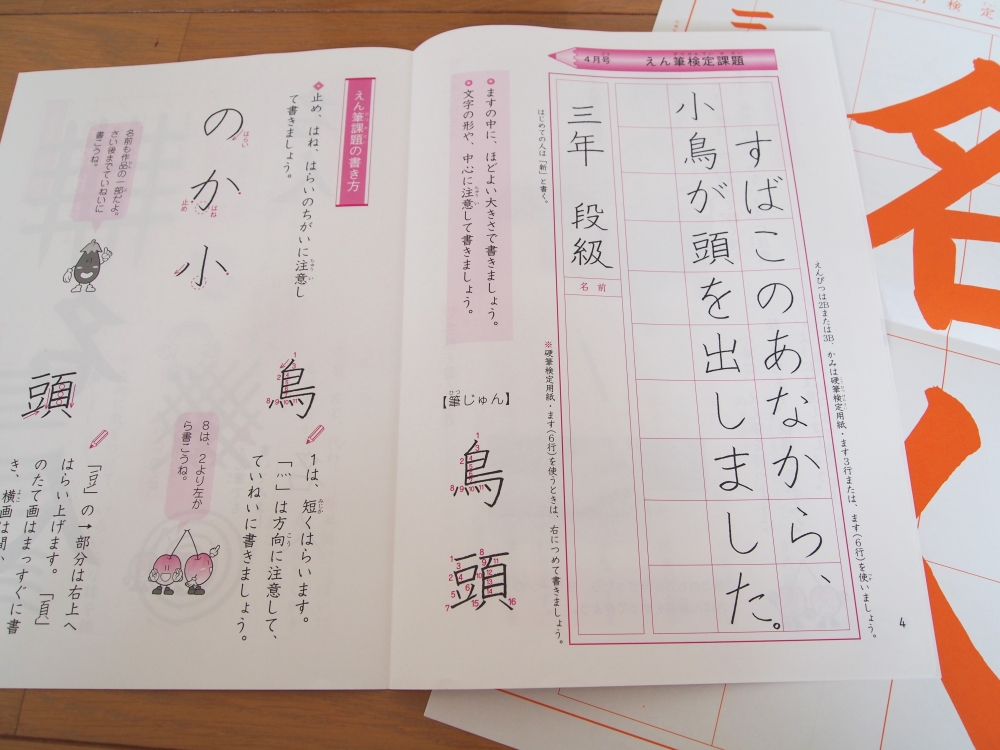 4月号 えん筆検定課題
えんぴつは2Bまたは3B、かみは硬筆検定用紙・ます3行または、ます(6行)を使いましょう。
すばこのあなから、
小鳥が頭を出しました。
三年 段級
名前
はじめての人は「新」と書く。
※硬筆検定用紙・ます(6行)を使うときは、右につめて書きましょう。
ますの中に、ほどよい大きさで書きましょう。
文字の形や、中心に注意して書きましょう。
【筆じゅん】
鳥
頭
4
えん筆課題の書き方
止め、はね、はらいのちがいに注意し
て書きましょう。
のか小
はらい
はね
止め
名前も作品の一部だよ。
さい後までていねいに
書こうね。
鳥
1は、短くはらいます。
「灬」は方向に注意して、
ていねいに書きましょう。
8は、2より左か
ら書こうね。
頭
「豆」の→部分は右上へ
はらい上げます。「頁」
のたて画はまっすぐに書
き、横画は間、
検定
名